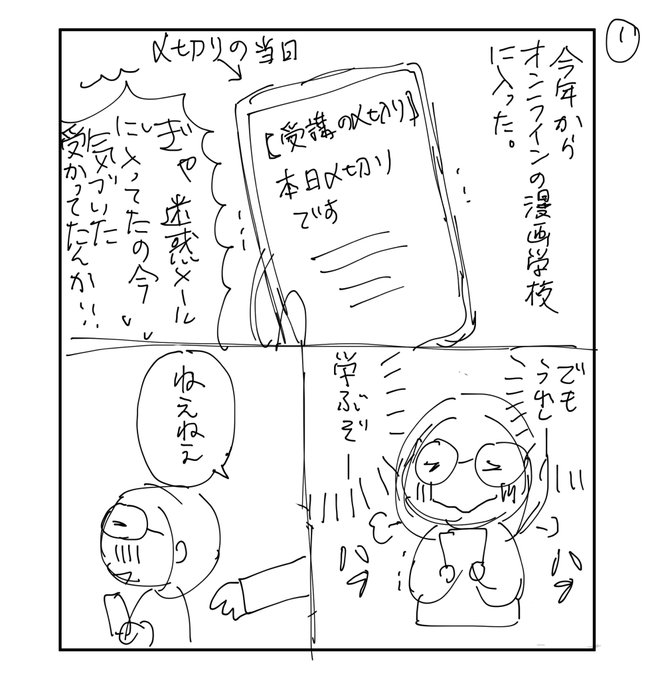 1
今年から
オンラインの漫画学校
に入った。
〆切りの当日
[受講の〆切り]
本日〆切り
です
ぎゃ迷惑メール
に入ってたの今
気づいた
受かってたんか!!
でも
うれしー
学ぶぞー
ハァ
ハァ
ねえねえ